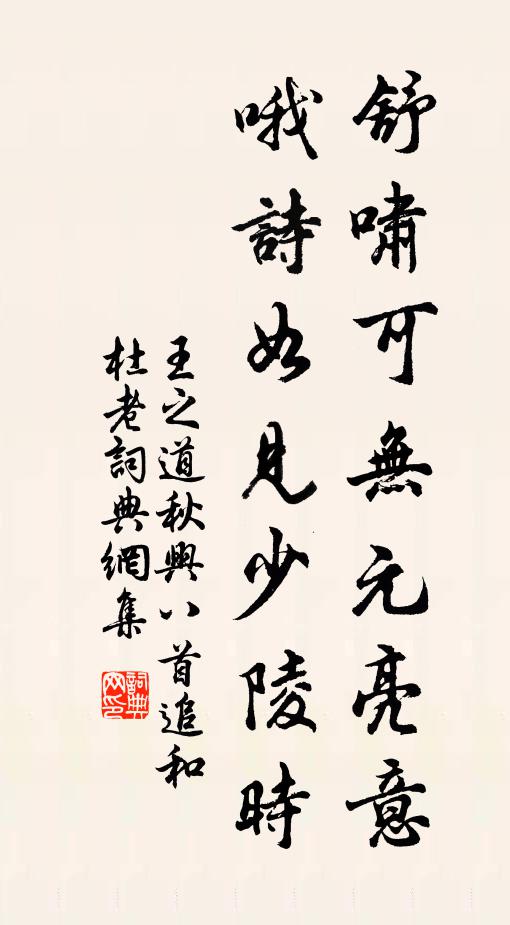 舒嘯可無元亮意
哦詩如見少陵時
王之道秋興八首追和
杜老詞典網集
詞典網印